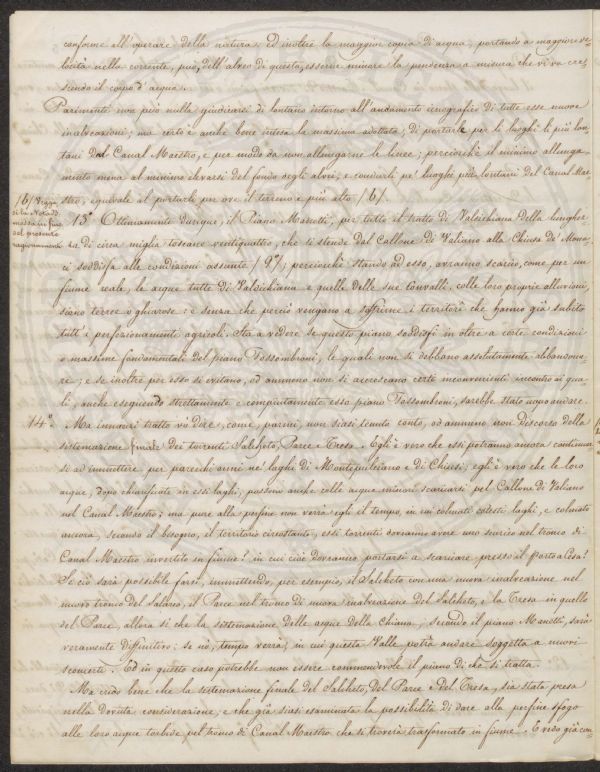 conforme all'operare della natura: ed inoltre la maggior copia d'acqua, portando a maggiore ve-
locità nella corrente, può, dell'alveo di questa, esserne minore la pendenza a misura che vi va cre-
scendo il corpo d'acqua.
Parimenti non può nulla giudicarsi di lontano intorno all'andamento icnografico di tutte esse nuove
inalveazioni; ma certo è anche bene intesa la massima adottata, di portarle per li luoghi li più lon-
tani dal Canal Maestro, e per modo da non allungarne le linee; perciocchè il minimo allunga-
mento mena al minimo elevarsi del fondo degli alvei, e condurli pe' luoghi più lontani del Canal Mae-
stro, equivale al portarli per ove il terreno è più alto /b/.
/b/ Veggasi la Nota B. messa in fine del presente ragionamento
13° Ottimamente dunque, il Piano Manetti, per tutto il tratto di Valdichiana della lunghez-
za di circa miglia toscane ventiquattro, che si stende dal Callone di Valiano alla Chiusa de' Mona-
ci soddisfa alle condizioni assunte /9°/; perciocchè stando ad esso, avranno scarico, come per un
fiume reale, le acque tutte di Valdichiana e quelle delle sue Convalli, colle loro proprie alluvioni,
siano terree o ghiarose: e senza che perciò vengano a soffrirne i territorî che hanno già subìto
tutt'i perfezionamenti agricoli. Sta a vedere se questo piano soddisfi in oltre a certe condizioni
o massime fondamentali del piano Fossombroni, le quali non si debbano assolutamente abbandona-
re; e se inoltre per esso si evitano, od almeno non si accrescano certi inconvenienti incontro ai qua-
li, anche eseguendo strettamente e compiutamente esso piano Fossombroni, sarebbe stato uopo andare.
14° Ma innanzi tratto vo' dire, come, parmi, non siasi tenuto conto, od almeno non discorso della
sistemazione finale dei torrenti Salcheto, Parce e Tresa. Egli è vero che essi potranno ancora continuar-
si ad immettere per parecchi anni ne' laghi di Montepulciano e di Chiusi; egli è vero che le loro
acque, dopo chiarificate in essi laghi, possono anche colle acque minori scaricarsi pel Callone di Valiano
nel Canal Maestro; ma pure alla perfine non verrà egli il tempo, in cui colmati cotesti laghi, e colmato
ancora, secondo il bisogno, il territorio circostante, essi torrenti dovranno avere uno scarico nel tronco di
Canal Maestro invertito in fiume? in cui cioè dovranno portarsi a scaricare presso il Porto a Cesa?
Se ciò sarà possibile farsi, immettendo, per esempio, il Salcheto con una nuova inalveazione nel
nuovo tronco del Salarco, il Parce nel tronco di nuova inalveazione del Salcheto, e la Tresa in quello
del Parce, allora si che la sistemazione delle acque della Chiana, secondo il piano Manetti, sarà
veramente diffinitivo: se nò, tempo verrà, in cui questa Valle potrà andare soggetta a nuovi
sconcerti. Ed in questo caso potrebbe non essere commendevole il piano di che si tratta.
Ma credo bene che la sistemazione finale del Salcheto, del Parce e del Tresa, sia stata presa
nella dovuta considerazione, e che già siasi esaminata la possibilità di dare alla perfine sfogo
alle loro acque torbide pel tronco di Canal Maestro che si troverà trasformato in fiume. E vedo già con-